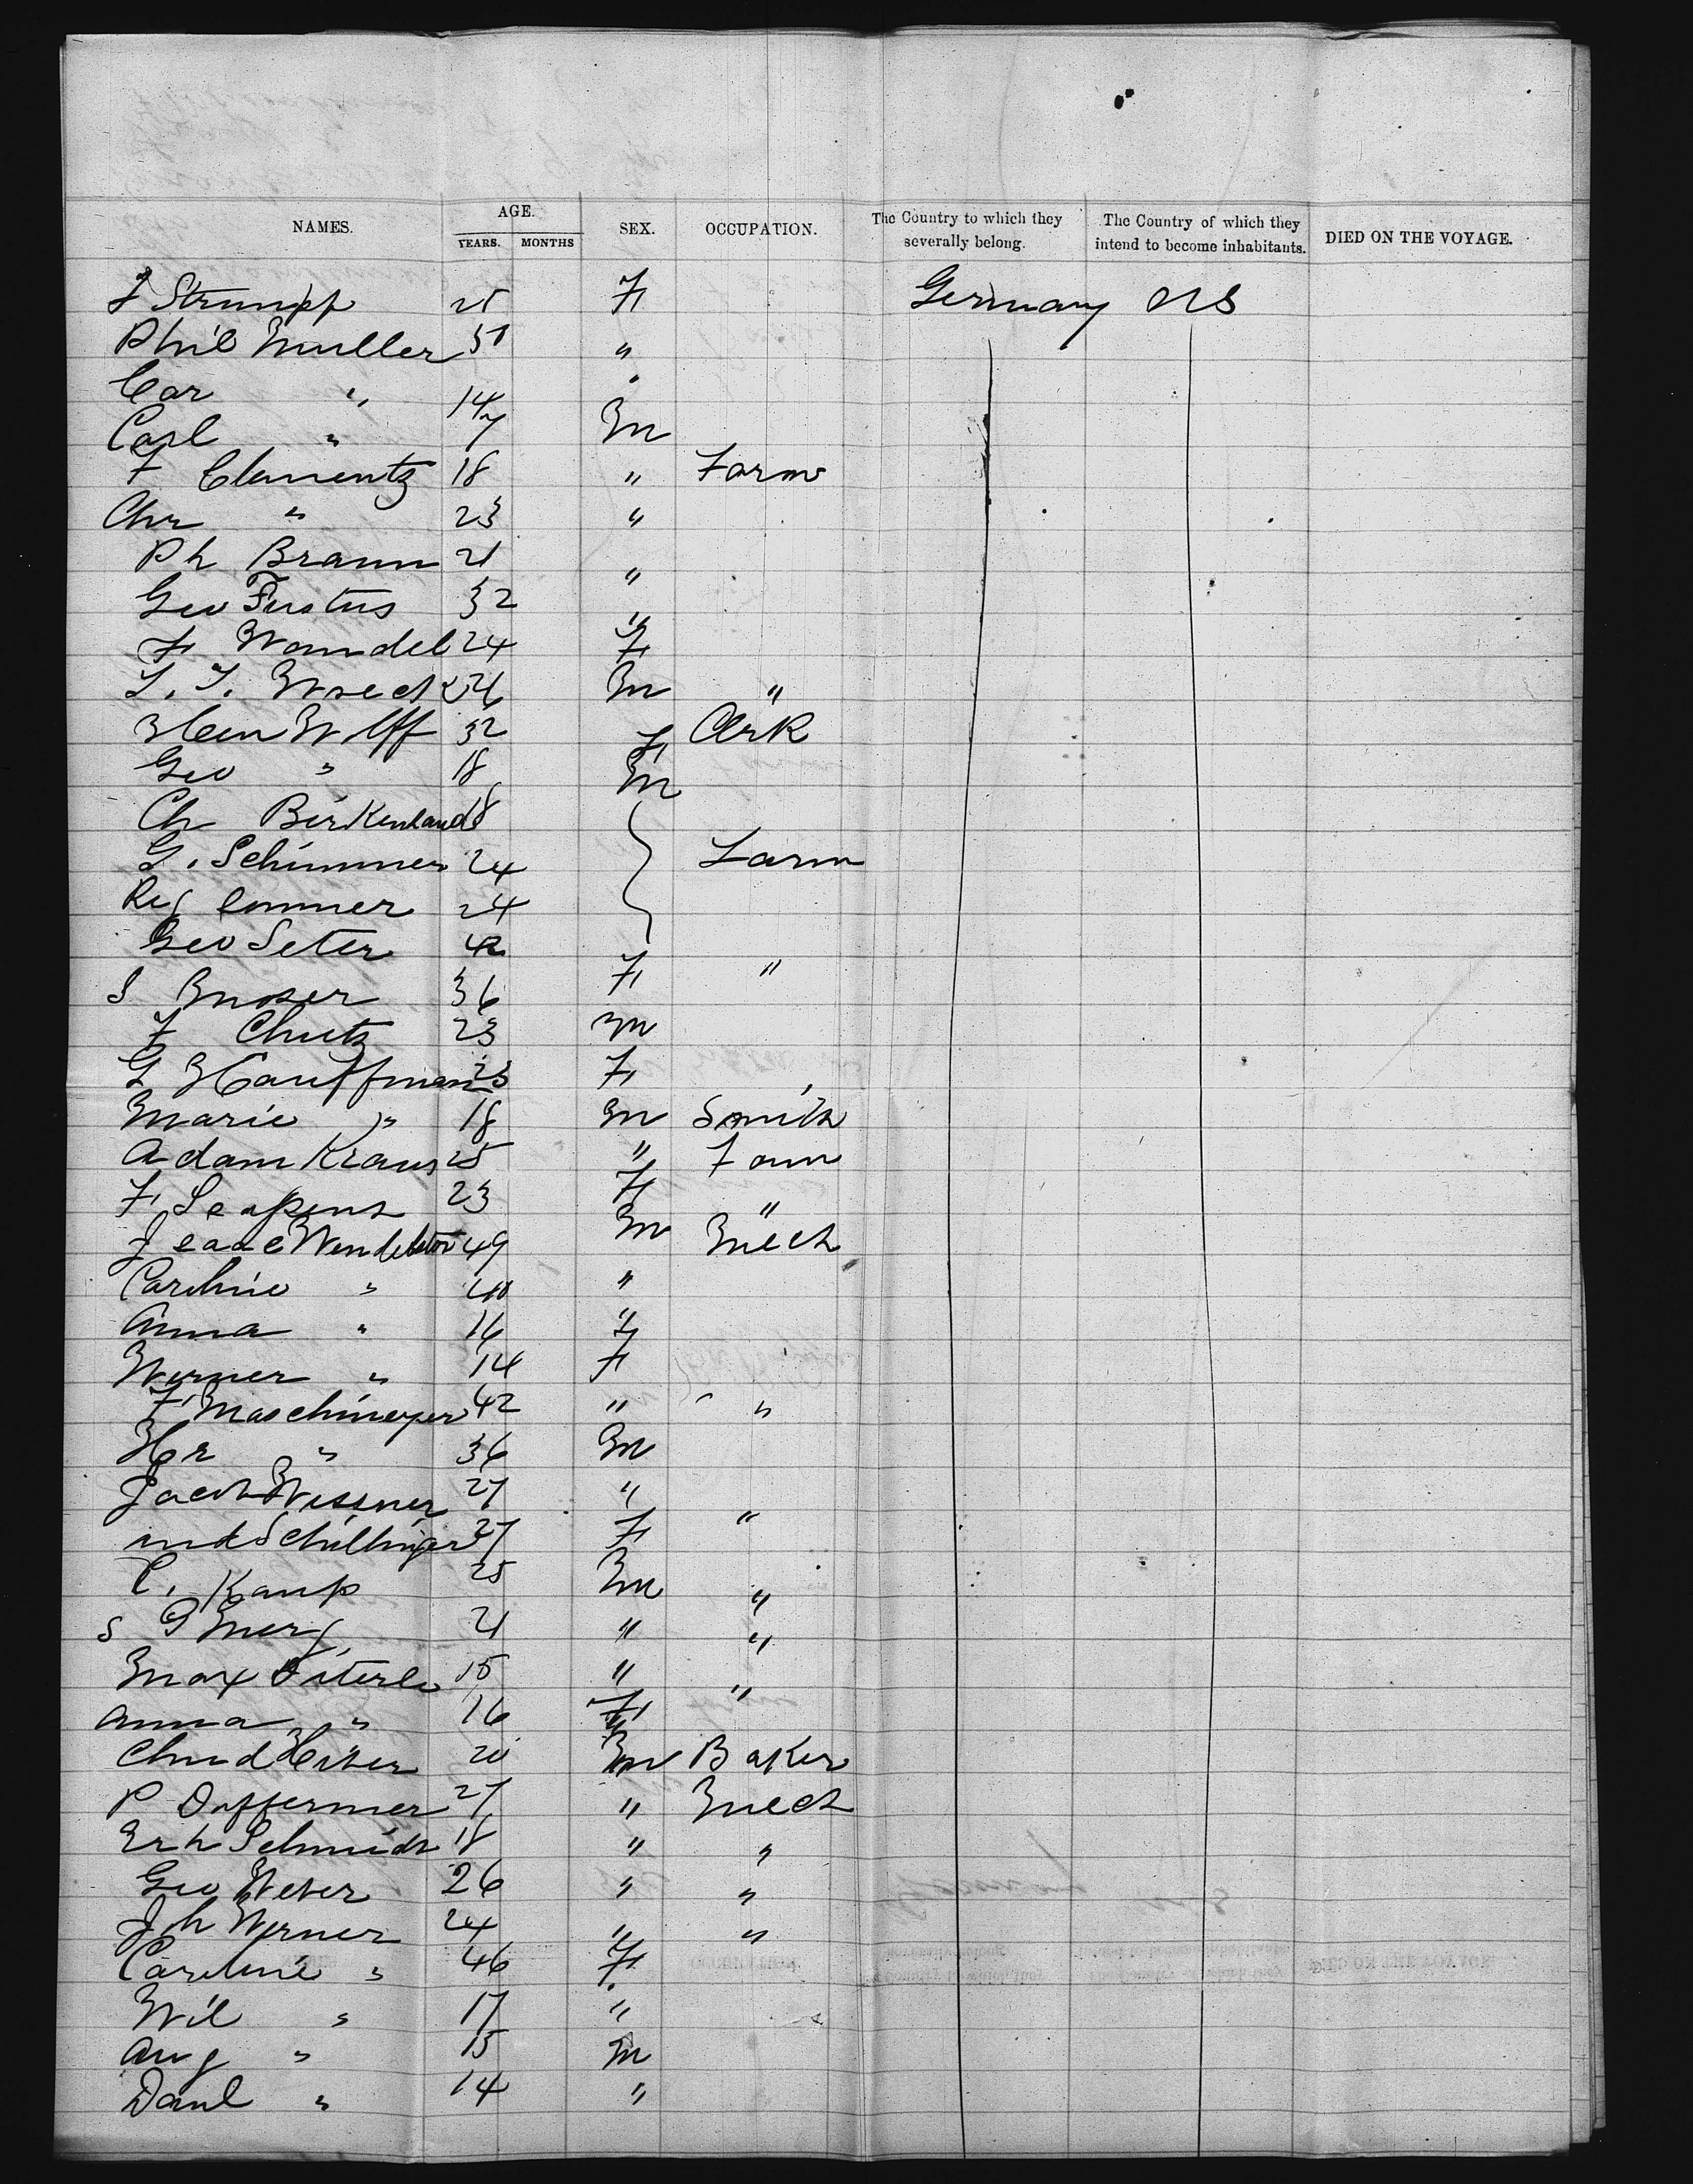 NAMES. AGE. YEARS. MONTHS SEX. OCCUPATION. The Country to which they severally belong. The Country of which they intend to become inhabitants. DIED ON THE VOYAGE.
F Strumpf 25 F Germany US
Phil Muller 30 "
Car " 14 "
Carl " 7 M
F Clementz 18 " Farm
Chr " 23 "
Ph Braun 21 "
Geo Fustus 32 "
F Wandel 24 F
26 M "
Wolff 32 F Clrk
Geo " 18 M
Ch Birkenland 18
G. Schimmer 24 Farm
24
Geo Seter 42
S Moser 36 F "
F Chutz 23 M
G Hauffman 23 F
Marie " 18 M Smith
Adam Kraus 25 " Farm
F 23 F "
49 M Mech
Caroline " 40 "
Anna " 16 "
Werner " 14 F
F Maschmeyer 42 " "
Hr " 36 M
Jacob Wissner 27 "
Schillinger 27 F "
C. Kamp 25 M "
S G Merg 21 " "
Max 15 " "
Anna " 16 F
20 M Baker
P Doffermer 27 " Mech
Erh Schmidt 18 " "
Geo Weber 26 " "
Joh Werner 24 " "
Caroline " 46 F
Wil " 17 "
Aug " 15 M
Danl " 14 "